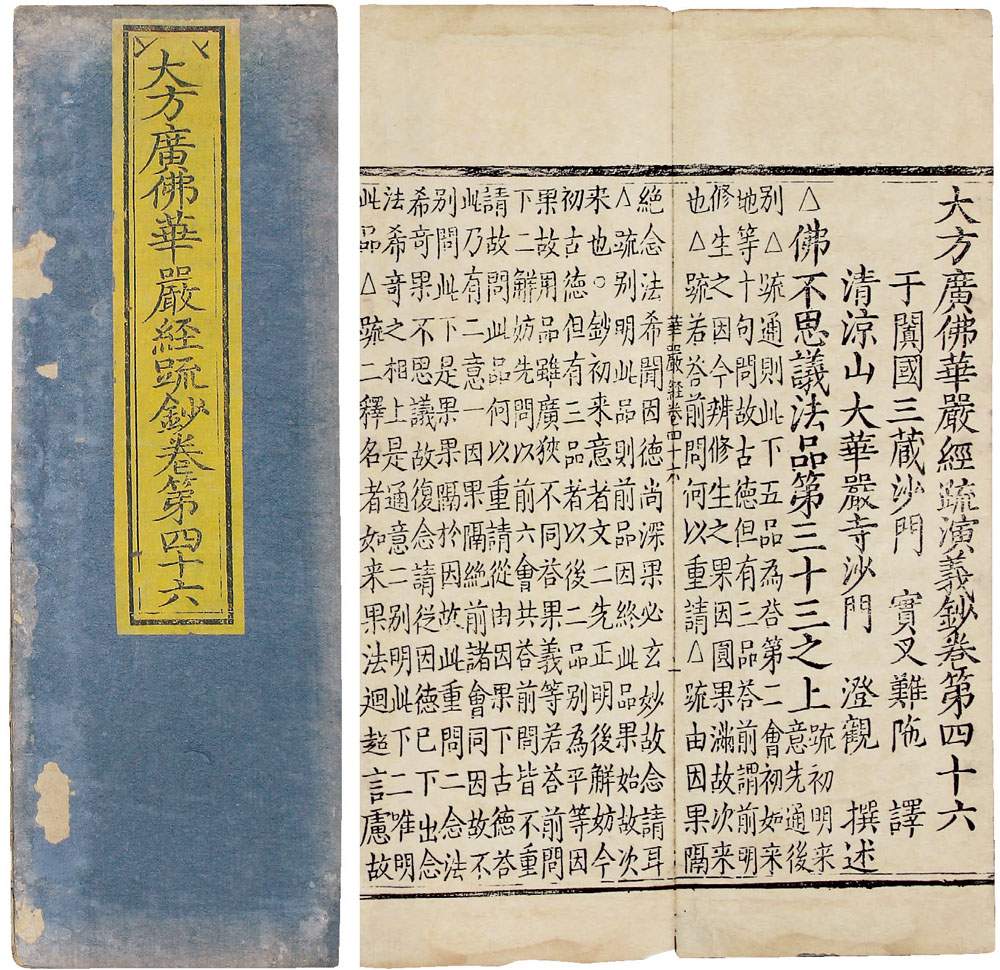 大方廣佛華嚴経䟽鈔卷第四十六
大方廣佛華嚴經䟽演義鈔卷第四十六
于闐國三藏沙門 實叉難陁 譯
清涼山大華嚴寺沙門 澄觀 撰述
△佛不思議法品第三十三之上
䟽初明来
意先通後
別△䟽通則此下五品為荅第二會初如来
地等十句問故古德但有三品荅前謂前明
修生之因今辨修生之果因圓果滿故次来
也△䟽若荅前問何以重請△䟽由因果隔
華嚴経卷四十六 一
絕念法希聞因德尚深果必玄妙故念請耳
△䟽別明此品則前品因終此品果始故次
来也○鈔初来意者文二先正明後解妨今
初古德但有三品者以後二品別為平等因
果故用品雖廣狹不同荅果義等若荅前問
下二解妨先問以前六會共荅前問皆不重
請故問此品何以重請從由因果下古德荅
此乃有二意一因果隔絕前諸會同因故不
別問此下是果果隔於因故此重問二念法
希奇果不思議故復念請從因德已下出念
法希奇之相上是通意二別明此下二唯明
此品△䟽二釋名者如来果法迥超言慮故